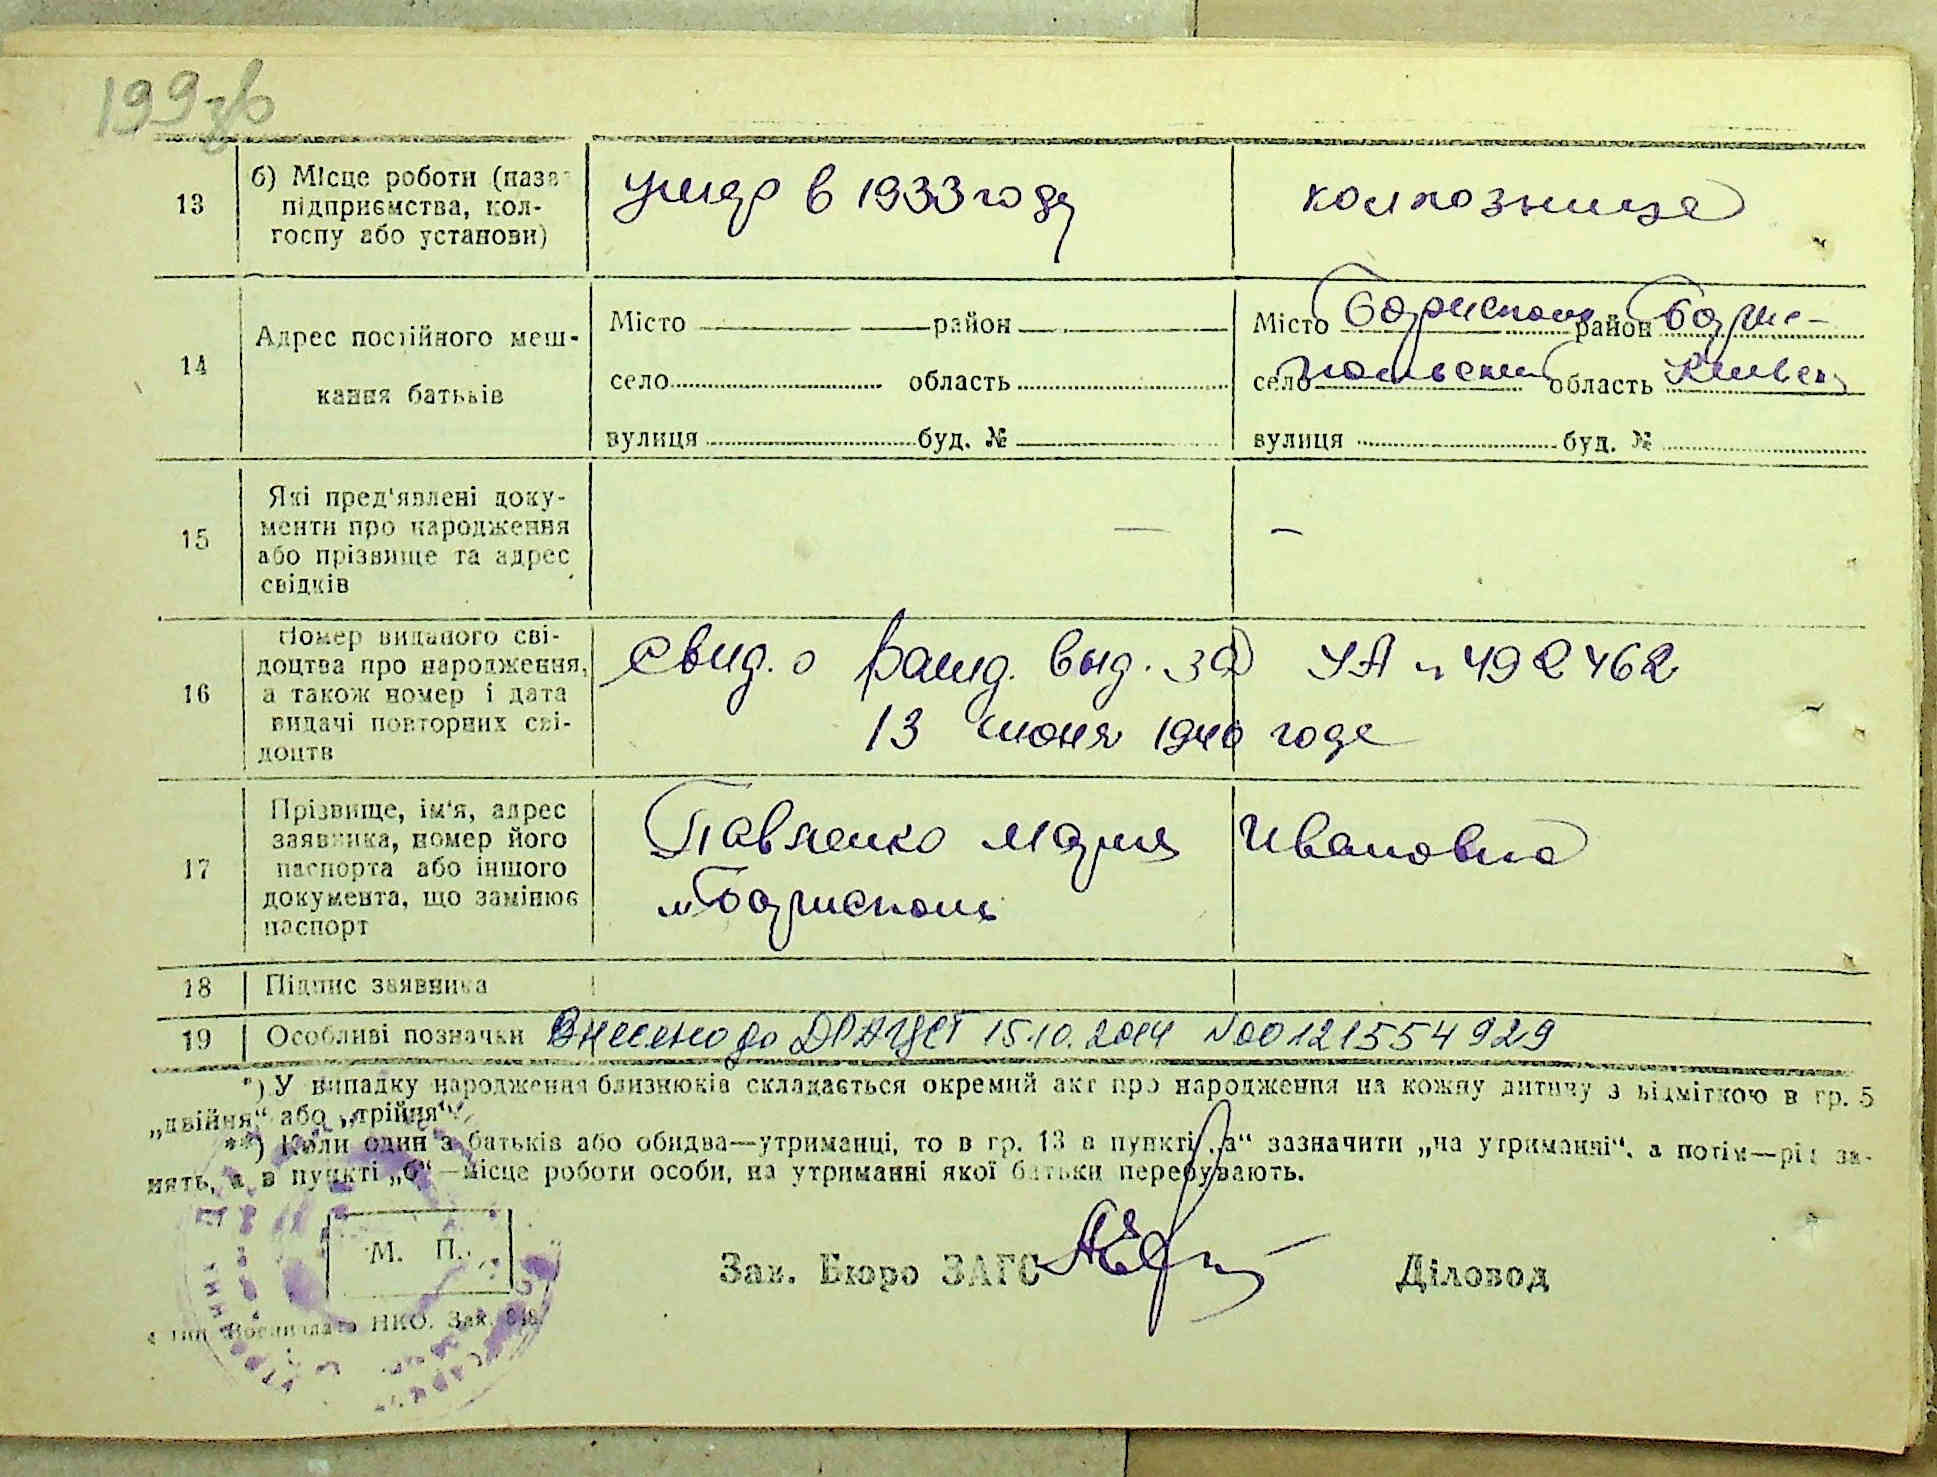 199 зв
13
б) Місце роботи (назва
підприємства, кол-
госпу або установи)
умер в 1933 году
колхозница
14
Адрес постійного меш-
кання батьків
Місто район
село область
вулиця буд. №
Місто Борисполь район Борис-
село польский область Киевск
вулиця буд. №
15
Які пред'явлені доку-
менти про народження
або прізвище та адрес
свідків
— —
16
Номер виданого сві-
доцтва про народження,
а також номер і дата
видачі повторних сві-
доцтв
свид. о рожд. выд. за УА № 492462
13 июня 1940 года
17
Прізвище, ім'я, адрес
заявника, номер його
паспорта або іншого
документа, що замінює
паспорт
Павленко Мария Ивановна
м Борисполь
18 Підпис заявника
19 Особливі позначки Внесено до ДРАЦСГ 15.10.2014 №00121554929
*) У випадку народження близнюків складається окремий акт про народження на кожну дитину з відміткою в гр. 5
„двійня“ або „трійня“.
**) Коли один з батьків або обидва—утриманці, то в гр. 13 в пункті „а“ зазначити „на утриманні“, а потім—рід за-
нять, а в пункті „б“—місце роботи особи, на утриманні якої батьки перебувають.
М. П.
Зав. Бюро ЗАГС Діловод
НКО. Зак.